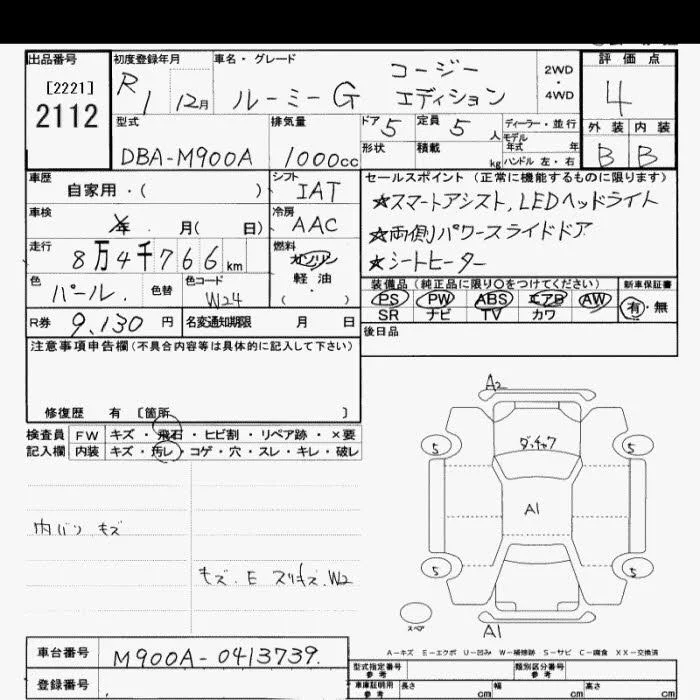 出品番号 初度登録年月 車名・グレード 2WD・4WD 評価点
[2221]
2112
R1 12月 ルーミーG コージーエディション 4
型式 排気量 ドア 5 定員 5 人 ディーラー・並行 外装 内装
モデル年式 年
DBA-M900A 1000cc 形状 積載 kg ハンドル 左・右 B B
車歴 シフト セールスポイント(正常に機能するものに限ります)
自家用・( ) IAT ☆スマートアシスト,LEDヘッドライト
車検 年 月( 日) 冷房 AAC ☆両側パワースライドドア
走行 8万4千766km 燃料 ガソリン 軽油・( ) ☆シートヒーター
色 パール. 色替 色コード W24 装備品(純正品に限り○をつけてください) 新車保証書
PS PW ABS エアB AW 有・無
SR ナビ TV カワ
R券 9,130円 名変通知期限 月 日 後日品
注意事項申告欄(不具合内容等は具体的に記入して下さい)
修復歴 有 [箇所 ]
検査員 FW キズ・飛石・ヒビ割・リペア跡・×要
記入欄 内装 キズ・汚レ・コゲ・穴・スレ・キレ・破レ
A2
5 ダッチャク 5
A1
内バン キズ
キズ.E スリキズ.W2
5 5
スペア
A1
A-キズ E-エクボ U-凹み W-補修跡 S-サビ C-腐食 XX-交換済
車台番号 M900A-0413739.
型式指定番号 参考 類別区分番号 参考
登録番号
車庫証明用 参考 長さ cm 幅 cm 高さ cm